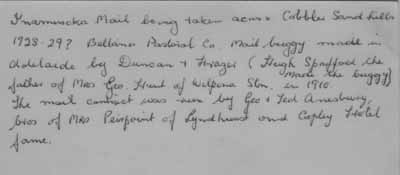 Innamincka Mail being taken across Cobbler Sand hills
1928-29? Beltana Pastoral Co. Mail buggy made in
Adelaide by Duncan & Frazer (Hugh Spafford the
father of Mrs Geo. Hunt of Wilpena Stn. made the buggy)
in 1910.
The mail contract was run by Geo & Ted Amesbury,
bros of Mrs Peirpoint of Lyndhurst and Copley Hotel
fame.